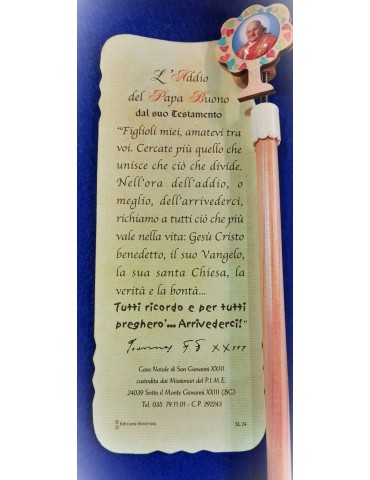 L'Addio
del Papa Buono
dal suo Testamento
"Figlioli miei, amatevi tra
voi. Cercate più quello che
unisce che ciò che divide.
Nell'ora dell'addio, o
meglio, dell'arrivederci,
richiamo a tutti ciò che più
vale nella vita: Gesù Cristo
benedetto, il suo Vangelo,
la sua santa Chiesa, la
verità e la bontà...
Tutti ricordo e per tutti
pregherò'... Arrivederci!"
XXIII
Casa Natale di San Giovanni XXIII
custodita dai Missionari del P.I.M.E.
24039 Sotto il Monte Giovanni XXIII (BG)
Tel. 035 79.11.01 - C.P. 292243
SL 24